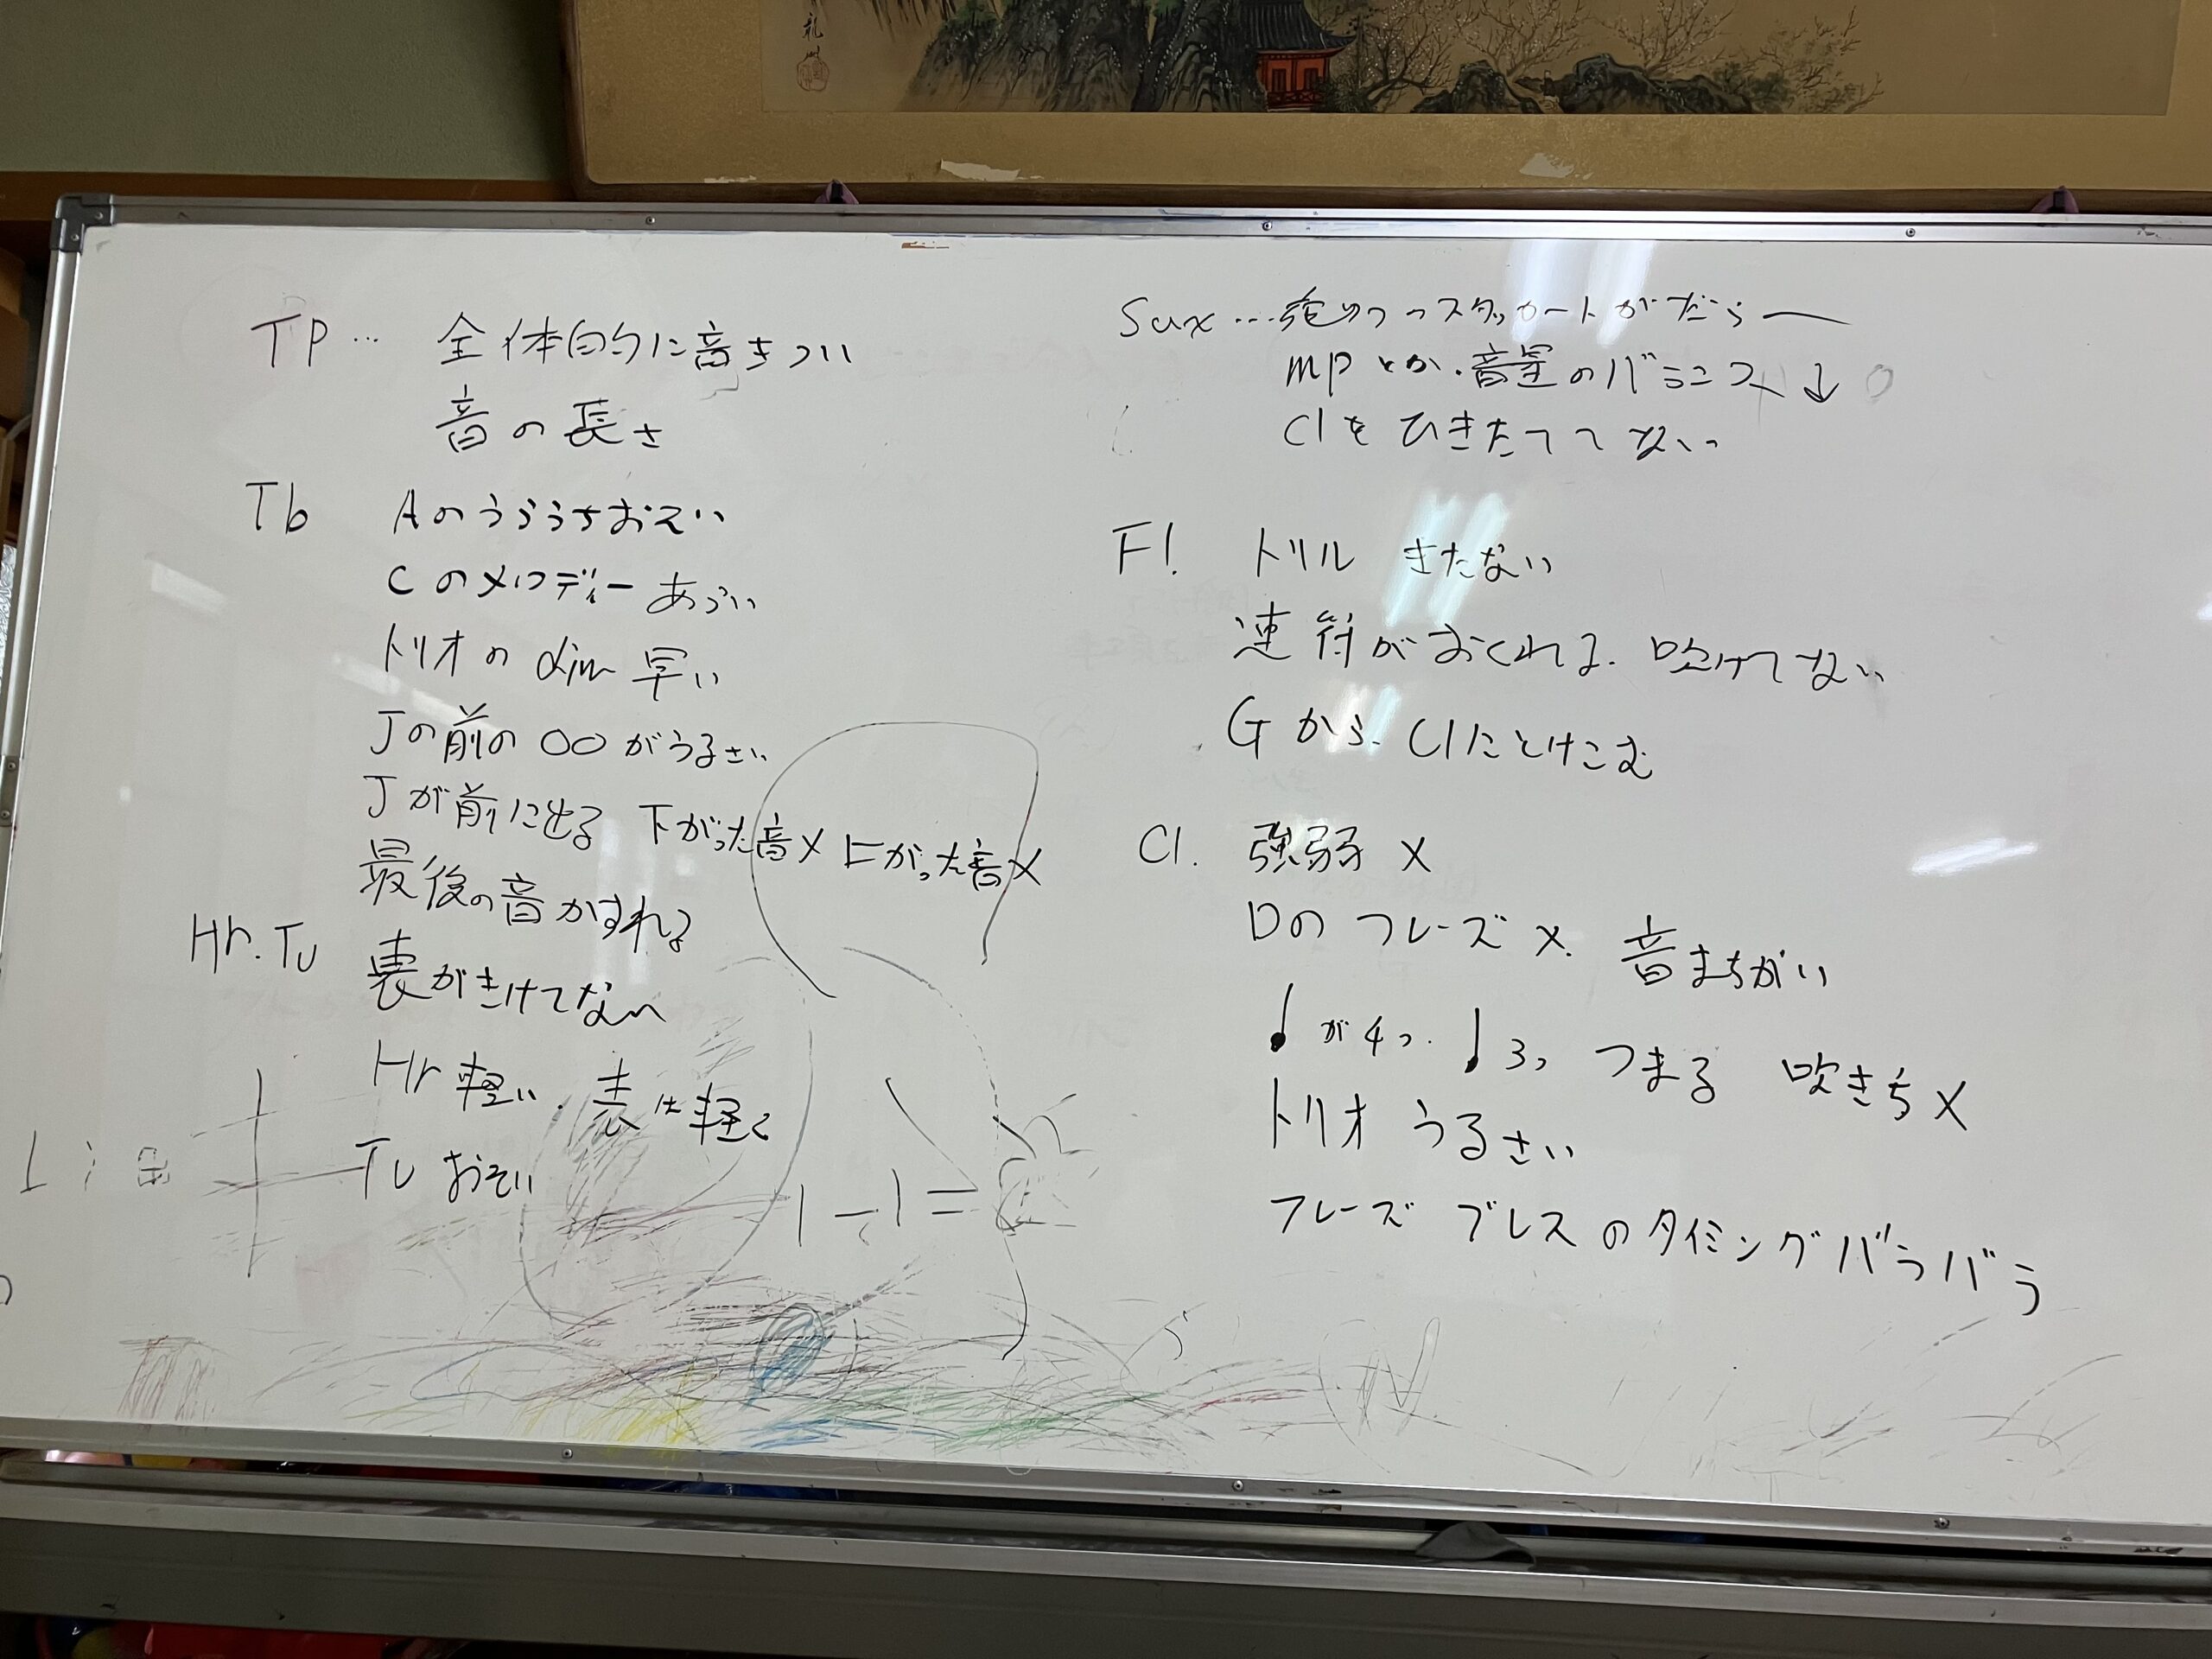 TP… 全体的に音きつい
音の長さ
Tb Aのうらうちおそい
Cのメロディーあつい
トリオのdim早い
Jの前の○○がうるさい
Jが前に出る 下がった音× 上がった音×
最後の音かすれる
Hr.Tu 裏がきけてない
Hr 軽い. 表は軽く
Tu おそい
1-1=
Sax… スタッカートがだらー
mpとか.音量のバランス↓
Clをひきたててない
Fl. トリル きたない
連符がおくれる. 吹けてない
Gから. Clにとけこむ
Cl. 強弱 ×
Dのフレーズ ×. 音まちがい
♩が4つ. ♩3つ つまる 吹きち×
トリオ うるさい
フレーズ ブレスのタイミングバラバラ